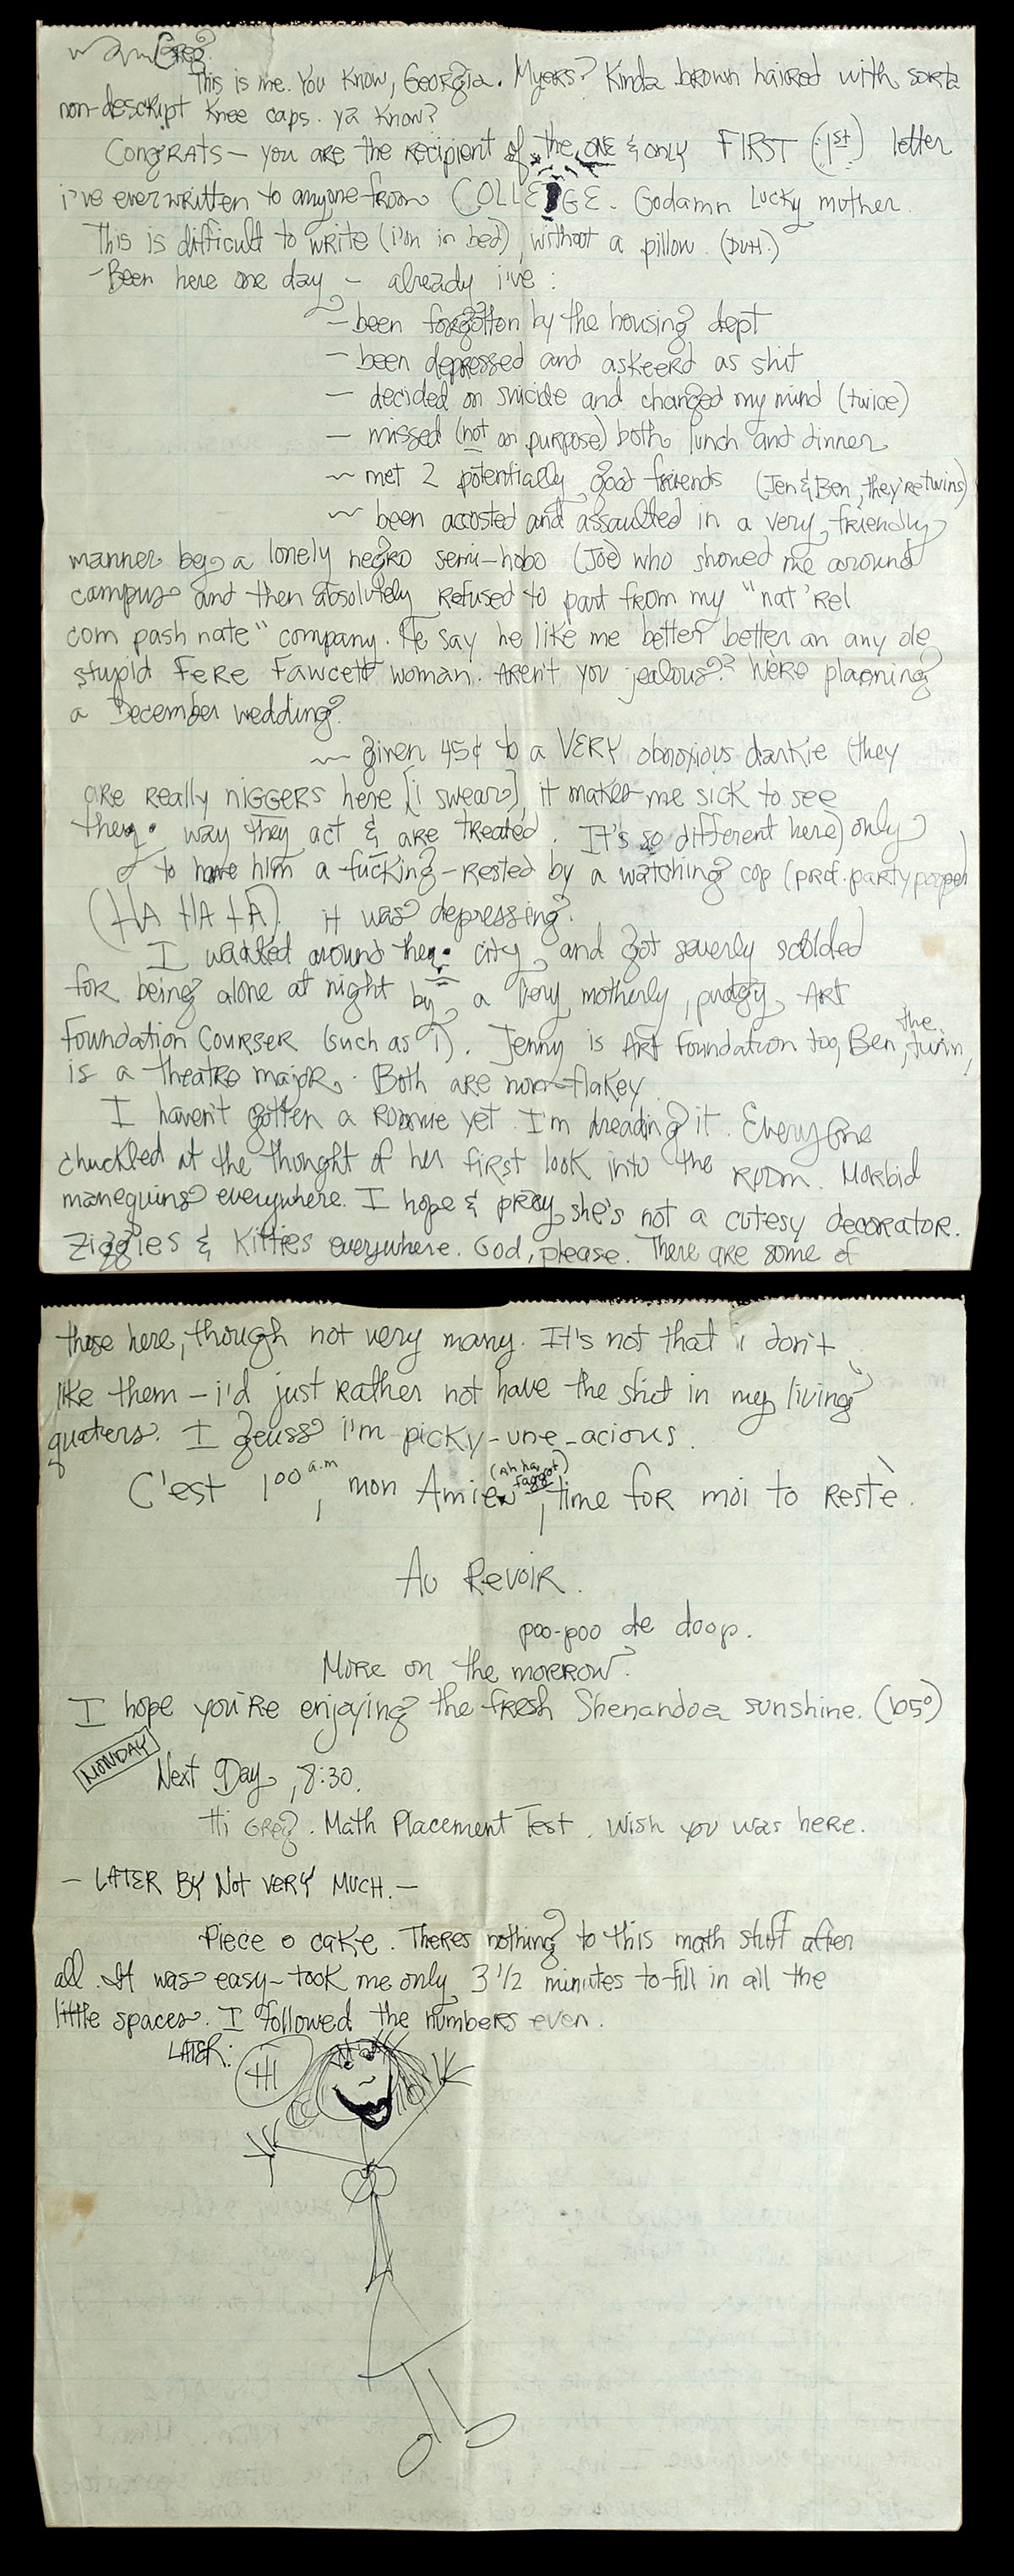 Greg?
This is me. You know, Georgia. Myers? Kinda brown haired with sorta
non-descript knee caps. ya know?
Congrats — you are the recipient of the ONE & only FIRST (1st) letter
i've ever written to anyone from COLLEGE. Godamn lucky mother.
This is difficult to write (i'm in bed), without a pillow. (DUH.)
-Been here one day — already i've:
— been forgotton by the housing dept
— been depressed and askeerd as shit
— decided on suicide and changed my mind (twice)
— missed (not on purpose) both lunch and dinner
~ met 2 potentially good friends (Jen & Ben, they're twins)
~ been accosted and assaulted in a very friendly
manner by a lonely negro semi-hobo (Joe) who showed me around
campus and then absolutely refused to part from my "nat'rel
com pash nate" company. He say he like me better better an any ole
stupid Fere Fawcett woman. Aren't you jealous?? We're planning
a December wedding.
~ given 45¢ to a VERY obnoxious darkie (they
are really niggers here [i swear], it makes me sick to see
the way they act & are treated. It's so different here) only
to have him a fucking-rested by a watching cop (prof. party pooper)
(HA HA HA). it was depressing.
I walked around the city and got severly scolded
for being alone at night by a very motherly, pudgy Art
Foundation Courser (such as I). Jenny is Art Foundation too, Ben, the twin,
is a theatre major. Both are non-flakey.
I haven't gotten a Roomie yet. I'm dreading it. Everyone
chuckled at the thought of her first look into the room. Morbid
manequins everywhere. I hope & pray she's not a cutesy decorator.
Ziggies & Kitties everywhere. God, please. There are some of
those here, though not very many. It's not that i don't
like them — i'd just rather not have the shit in my living
quaters. I geuss i'm picky-une-acious.
C'est 1 00 a.m, mon Amie (ah ha faggot), time for moi to restè.
Au Revoir.
poo-poo de doop.
More on the morrow.
I hope you're enjoying the fresh Shenandoa sunshine. (105°)
MONDAY
Next Day, 8:30.
Hi Greg. Math Placement Test. Wish you was here.
— LATER BY NOT VERY MUCH. —
Piece o cake. Theres nothing to this math stuff after
all. It was easy - took me only 3 1/2 minutes to fill in all the
little spaces. I followed the numbers even.
LATER:
HI